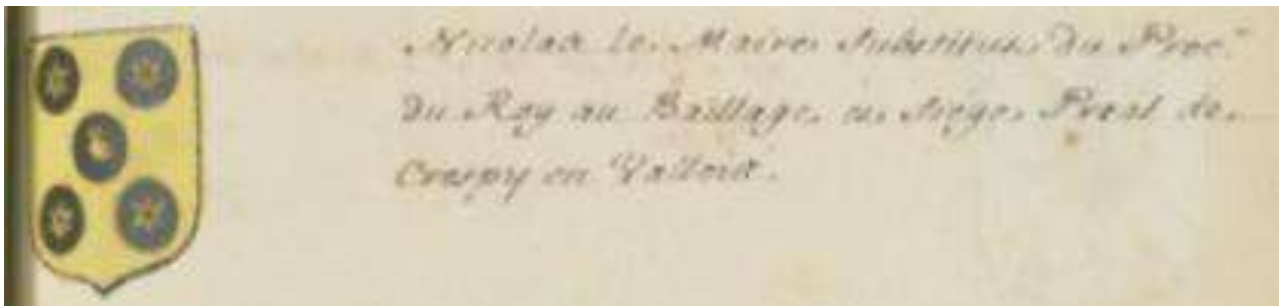 Nicolas le Maire Substitut du Proc.r
du Roy au Baillage, et Siege Pr.al de
Crespy en Vallois.